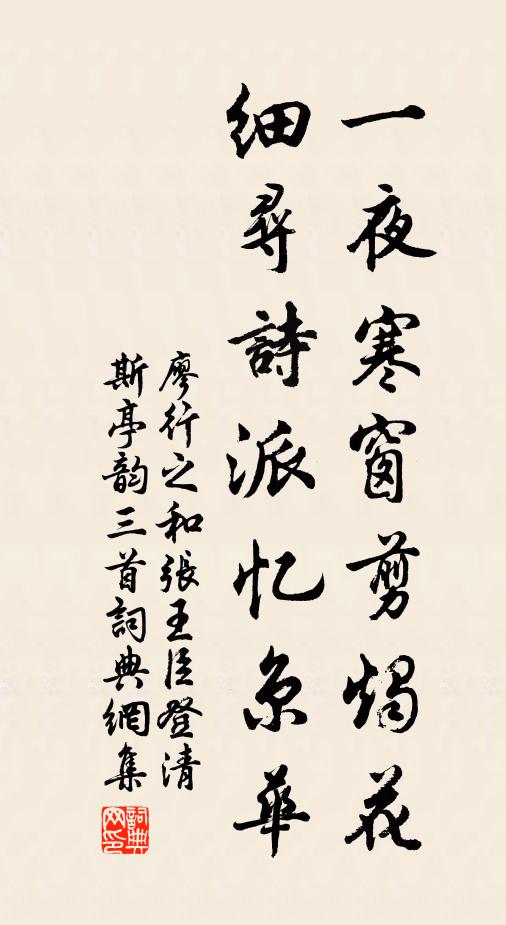 一夜寒窗剪燭花
細尋詩派忆京華
廖行之和張王臣登清
斯亭韵三首詞典網集
詞典網印